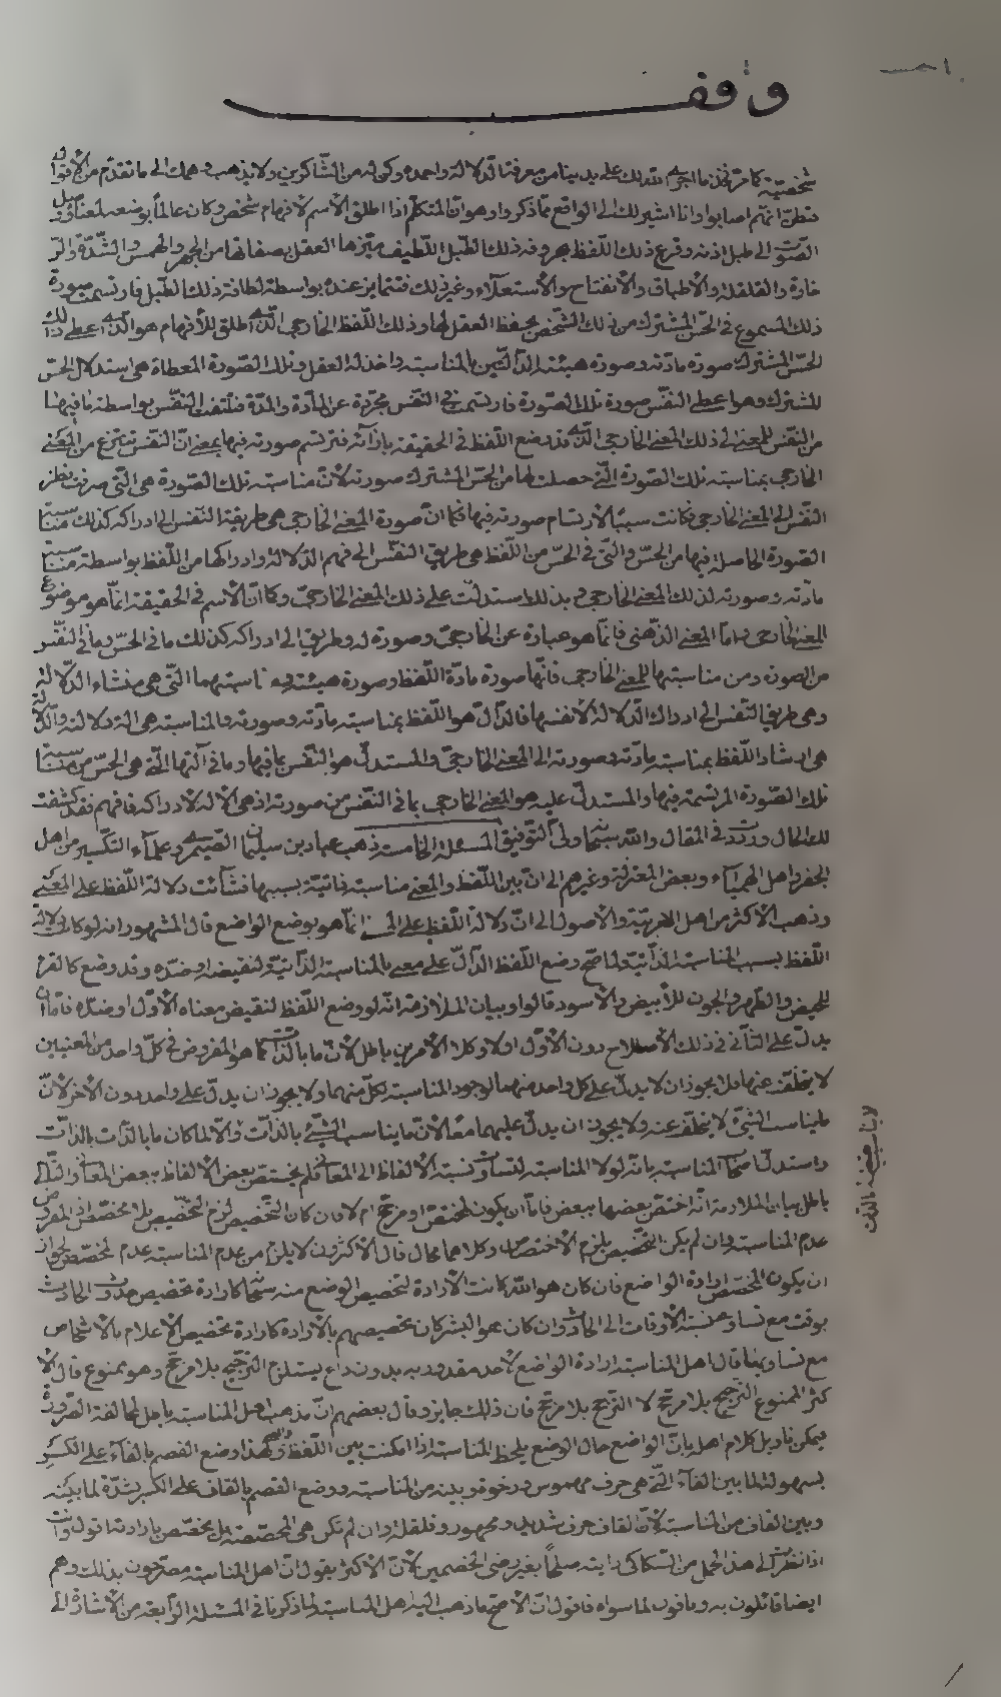 وقف
شخصية كما مر فخذ ما اجرى الله لك على يدينا من معرفة الدلالة واحمده وكن له من الشاكرين ولا يذهب وهمك الى ما تقدم من الأقوال
فتظن انهم اصابوا وانا اشير لك الى الواقع مما ذكروا وهو ان المتكلم اذا اطلق الأسم لافهام شخص وكان عالماً بوضعه لمعناه وصل
الصوت الى طبل اذنه وقرع ذلك اللفظ بحروفه ذلك الطبل اللطيف ميزها العقل بصفاتها من الجهر والهمس والشدة والر
خاوة والقلقلة والأطباق والأنفتاح والأستعلاء وغير ذلك فتتمايز عنده بواسطة لطافة ذلك الطبل فارتسمت صورة
ذلك المسموع في الحس المشترك من ذلك الشخص بحفظ العقل لها وذلك اللفظ الخارجي الذي اطلق للأفهام هو الذي اعطى ذلك
الحس المشترك صورة مادته وصورة هيئته الدالتين بالمناسبة واخذ له العقل وتلك الصورة المعطاة هي استدلال الحس
المشترك وهو اعطى النفس صورة تلك الصورة فارتسمت في النفس مجردة عن المادة والمدة فتلتفت النفس بواسطة ما فيها
من النفس للمعنى الى ذلك المعنى الخارجي الذي قد وضع اللفظ في الحقيقة بازآئه فترتسم صورته فيها بمعنى ان النفس تنتزع من المعنى
الخارجي بمناسبة تلك الصورة التي حصلت لها من الحس المشترك صورته لأن مناسبة تلك الصورة هي التي صرفت نظر
النفس الى المعنى الخارجي فكانت سبباً لأرتسام صورته فيها فكما ان صورة المعنى الخارجي هي طريقة النفس الى ادراكه كذلك مناسبة
الصورة الحاصلة فيها من الحس والتي في الحس من اللفظ هي طريق النفس الى فهم الدلالة وادراكها من اللفظ بواسطة مناسبة
مادته وصورته لذلك المعنى الخارجي فبذلك استدلت على ذلك المعنى الخارجي وكما ان الأسم في الحقيقة انما هو موضوع
للمعنى الخارجي واما المعنى الذهني فانما هو عبارة عن الخارجي وصورة له وطريق الى ادراكه كذلك ما في الحس وما في النفس
من الصورة ومن مناسبتها للمعنى الخارجي فانها صورة مادة اللفظ وصورة هيئته ومناسبتهما التي هي منشاء الدلالة
وهي طريق النفس الى ادراك الدلالة لأنفسها فالدال هو اللفظ بمناسبة مادته وصورته والمناسبة هي الة دلالته والدلالة
هي ارشاد اللفظ بمناسبة مادته وصورته الى المعنى الخارجي والمستدل هو النفس بما فيها وما في آلتها التي هي الحس من مناسبة
تلك الصورة المرتسمة فيها والمستدل عليه هو المعنى الخارجي بما في النفس من صورته اذ هي الالة لادراكه فافهم فقد كشفت
لك الحال ورددت في المقال والله سبحانه ولي التوفيق المسئلة الخامسة ذهب عباد بن سليمان الصيمري وعلمآء التكسير من اهل
الجفر واهل الهيمياء وبعض المعتزلة وغيرهم الى ان بين اللفظ والمعنى مناسبة ذاتية بسببها نشأت دلالة اللفظ على المعنى
وذهب الأكثر من اهل العربية والأصول الى ان دلالة اللفظ على المعنى انما هو بوضع الواضع قال المشهور انه لو كان دلالة
اللفظ بسبب المناسبة الذاتية لما صح وضع اللفظ الدال على معنى بالمناسبة الذاتية لنقيضه او ضده وقد وضع كالقرء
للحيض والطهر والجون للأبيض والأسود قالوا وبيان الملازمة انه لو وضع اللفظ لنقيض معناه الأول او ضده فاما ان
يدل على الثاني في ذلك الأصطلاح دون الأول اولا وكلا الأمرين باطل لأن ما بالذات كما هو المفروض في كل واحد من المعنيين
لا يتخلف عنها فلا يجوز ان لا يدل على كل واحد منهما لوجود المناسبة لكل منهما ولا يجوز ان يدل على واحد دون الأخر لأن
ما يناسب الشئ لا يتخلف عنه ولا يجوز ان يدل عليهما معاً لأن ما يناسب الشئ بالذات والا لما كان ما بالذات بالذات
واستدل اصحاب المناسبة بانه لولا المناسبة لتساوت نسبة الألفاظ الى المعاني فلم يختص بعض الألفاظ ببعض المعاني والتالي
باطل بيان الملازمة انه اختص بعضها ببعض فاما ان يكون لمخصص او مرجح ام لا فان كان التخصيص لزم التخصيص بلا مخصص اذ المفروض
عدم المناسبة وان لم يكن التخصيص يلزم الأختصاص وكلاهما محال قال الأكثرون لا يلزم من عدم المناسبة عدم المخصص لجواز
ان يكون المخصص ارادة الواضع فان كان هو الله كانت الأرادة لتخصيص الوضع منه سبحانه كارادة تخصيص حدوث الحادث
بوقت مع تساوى نسبة الأوقات الى الحادث وان كان هو البشر كان تخصيصهم بالأرادة كارادة تخصيص الأعلام بالأشخاص
مع تساويها قال اهل المناسبة ارادة الواضع لأحد مقدوريه بدون داع يستلزم الترجيح بلا مرجح وهو ممنوع قال الأ
كثر الممنوع الترجح بلا مرجح لا الترجيح بلا مرجح فان ذلك جايز وقال بعضهم ان مذهب اهل المناسبة باطل لمخالفة الضرورة
فيمكن تاويل كلام اهله بان الواضع حال الوضع يلحظ المناسبة اذا امكنت بين اللفظ والمعنى ولهذا وضع الفصم بالفآء على الكسر
بسهولة لما بين الفآء التي هي حرف مهموس ورخو وبينه من المناسبة ووضع القصم بالقاف على الكسر بشدة لما بينه
وبين القاف من المناسبة لأن القاف حرف شديد ومجهور وقلقلة وان لم تكن هي المخصصة بل مخصص بارادته اقول وانت
اذا نظرت الى هذا الحمل من السكاكي رايته صلحاً بغير رضى الخصمين لأن الأكثر يقول ان اهل المناسبة مصرحون بذلك وهم
ايضا قائلون به ونافون لما سواه فاقول ان الأصح ما ذهب اليه اهل المناسبة لما ذكرنا في المسئلة الرابعة من الأشارة الى